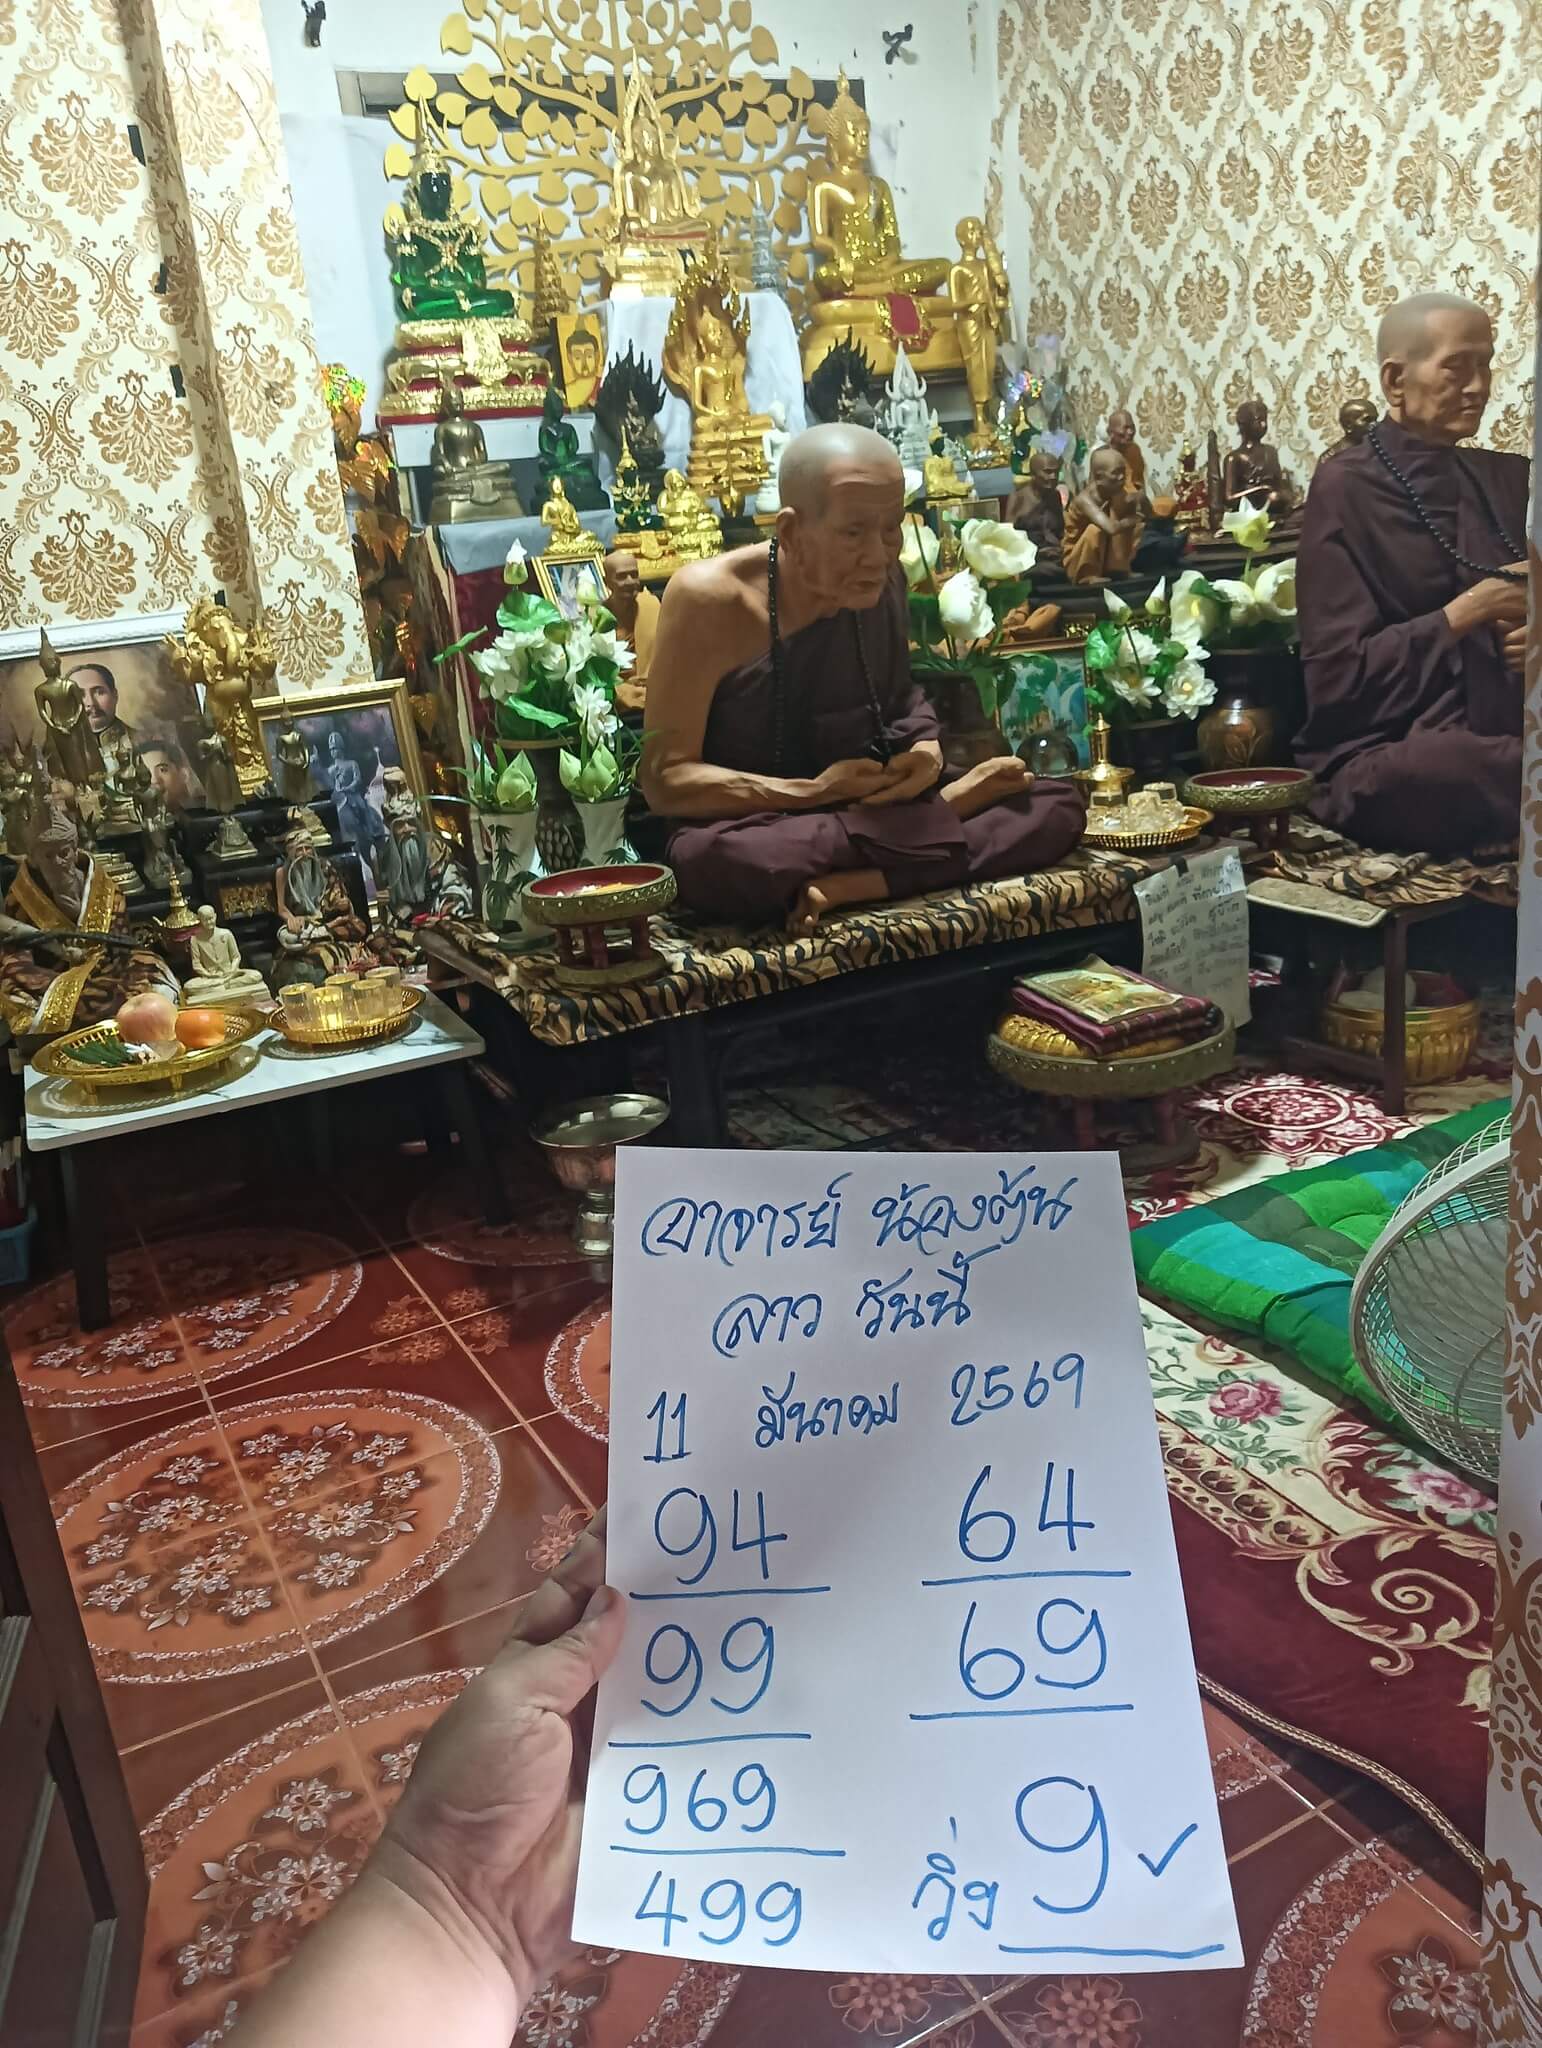 อาจารย์ น้องต้น
ลาว วันนี้
11 มีนาคม 2569
94 64
99 69
969
499
วิ่ง 9 ✓